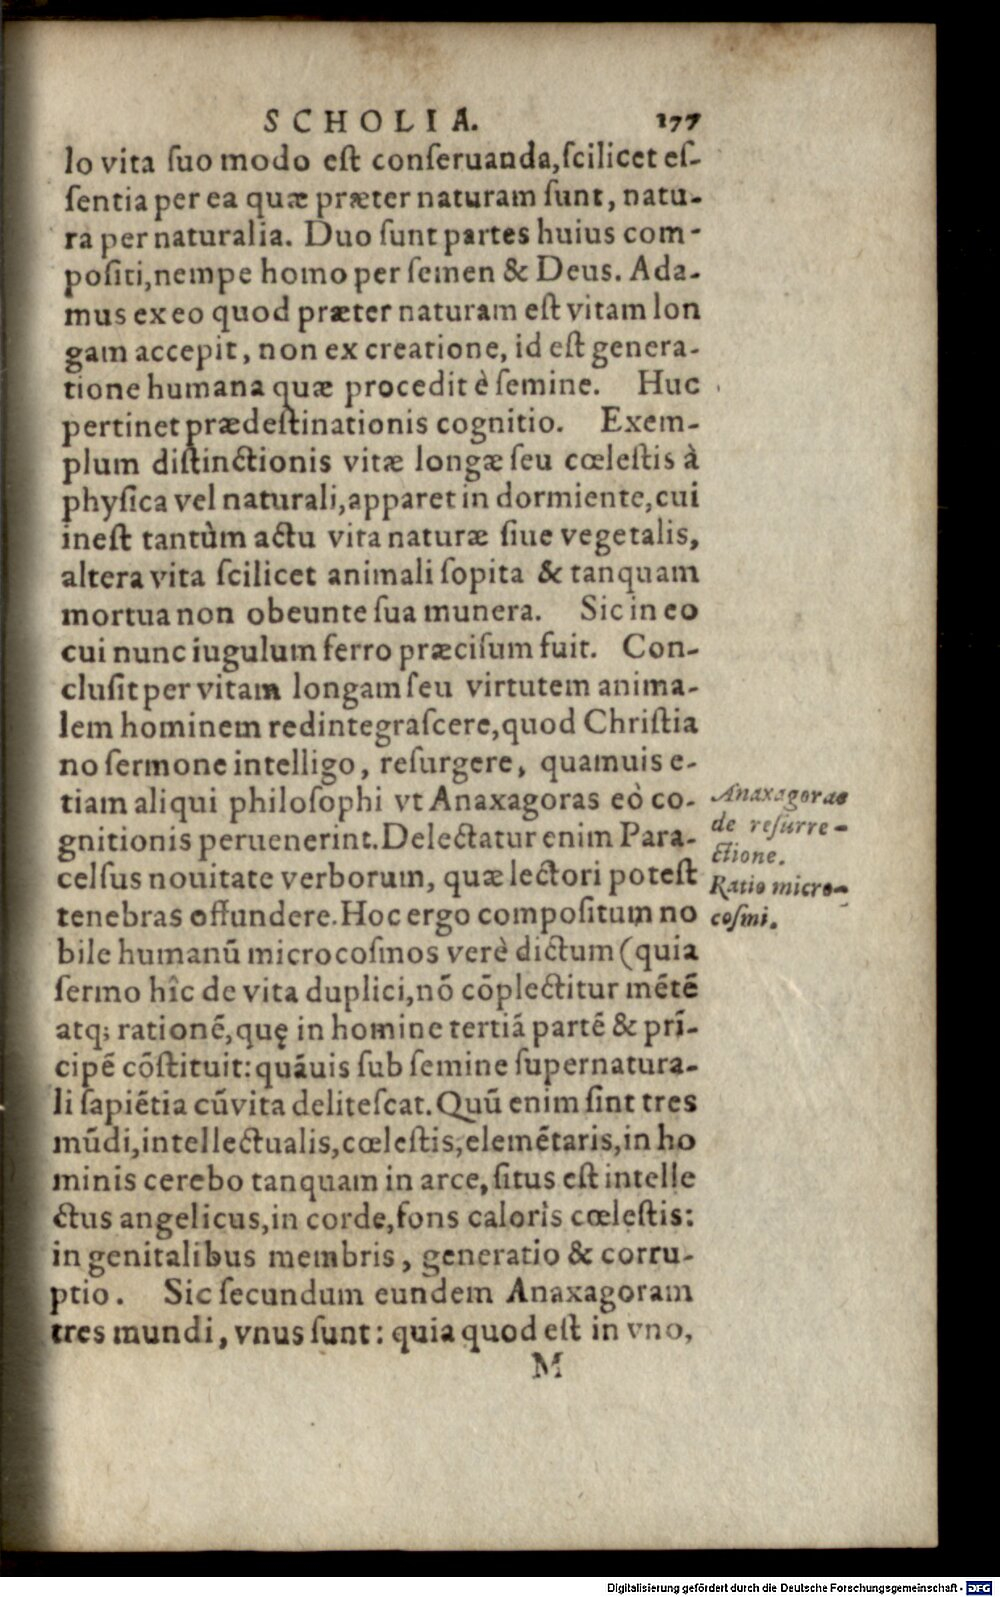 SCHOLIA. 177
lo vita ſuo modo eſt conſeruanda,ſcilicet eſ-
ſentia per ea quæ præter naturam ſunt, natu-
ra per naturalia. Duo ſunt partes huius com-
poſiti,nempe homo per ſemen & Deus. Ada-
mus ex eo quod præter naturam eſt vitam lon
gam accepit, non ex creatione, id eſt genera-
tione humana quæ procedit è ſemine. Huc
pertinet prædeſtinationis cognitio. Exem-
plum diſtinctionis vitæ longæ ſeu cœleſtis à
phyſica vel naturali,apparet in dormiente,cui
ineſt tantùm actu vita naturæ ſiue vegetalis,
altera vita ſcilicet animali ſopita & tanquam
mortua non obeunte ſua munera. Sic in eo
cui nunc iugulum ferro præciſum fuit. Con-
cluſit per vitam longam ſeu virtutem anima-
lem hominem redintegraſcere,quod Chriſtia
no ſermone intelligo, reſurgere, quamuis e-
tiam aliqui philoſophi vt Anaxagoras eò co-
gnitionis peruenerint.Delectatur enim Para-
celſus nouitate verborum, quæ lectori poteſt
tenebras offundere.Hoc ergo compoſitum no
bile humanū microcoſmos verè dictum (quia
ſermo hîc de vita duplici,nō cōplectitur mētē
atq; rationē,quę in homine tertiā partē & prī-
cipē cōſtituit:quāuis ſub ſemine ſupernatura-
li ſapiētia cū vita deliteſcat.Quū enim ſint tres
mūdi,intellectualis,cœleſtis,elemētaris,in ho
minis cerebo tanquam in arce, ſitus eſt intelle
ctus angelicus,in corde,fons caloris cœleſtis:
in genitalibus membris, generatio & corru-
ptio. Sic ſecundum eundem Anaxagoram
tres mundi, vnus ſunt: quia quod eſt in vno,
M
Anaxagoras
de reſurre-
ctione.
Ratio micro-
coſmi.
Digitalisierung gefördert durch die Deutsche Forschungsgemeinschaft - DFG